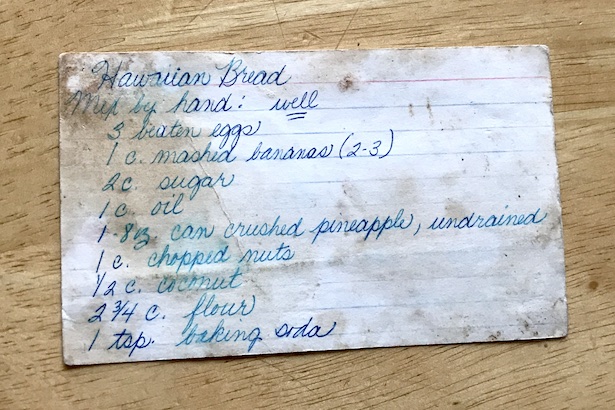 Hawaiian Bread
Mix by hand: well
3 beaten eggs
1 c. mashed bananas (2-3)
2 c. sugar
1 c. oil
1-8 oz can crushed pineapple, undrained
1 c. chopped nuts
1/2 c. coconut
2 3/4 c. flour
1 tsp. baking soda